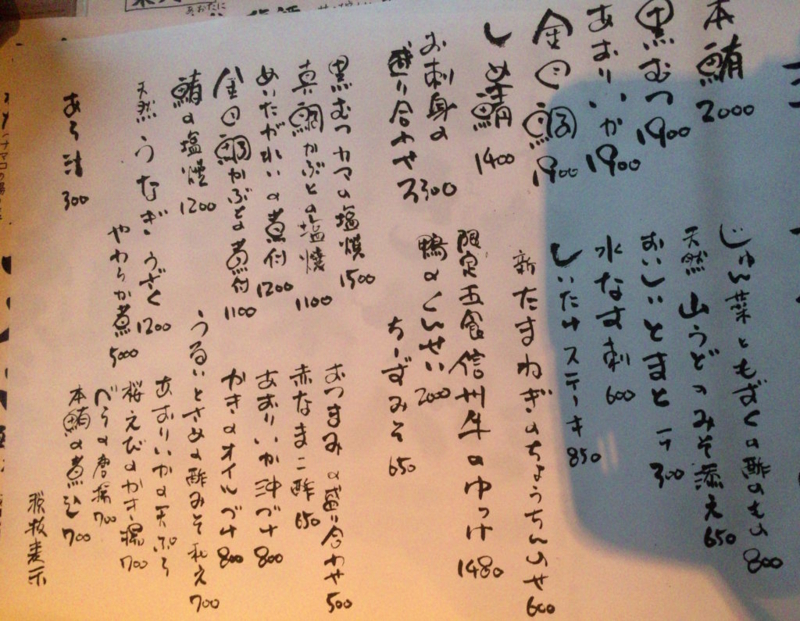 本鮪 2000
黒むつ 1900
あおりいか 1900
金目鯛 1900
しめ鯖 1400
お刺身の
盛り合わせ 2300
じゅん菜ともずくの酢のもの 800
天然 山うどのみそ添え 650
おいしいとまと 300
水なす刺 600
しいたけステーキ 850
新たまねぎのちょうちんのせ 600
限定五食信州牛のゆっけ 1480
鴨のくんせい 700
ちーずみそ 650
黒むつカマの塩焼 1500
真鯛かぶとの塩焼 1100
めいたがれいの煮付 1200
金目鯛かぶとの煮付 1100
鮪の塩焼 1200
天然うなぎうざく 1200
やわらか煮 5000
あら汁 300
おつまみの盛り合わせ 500
赤なまこ酢 650
あおりいか沖づけ 800
かきのオイルづけ 800
うるいとさめの酢みそ和え 700
あおりいかの天ぷら
桜えびのかき揚 700
べらの唐揚 700
本鮪の煮込 700
税抜表示